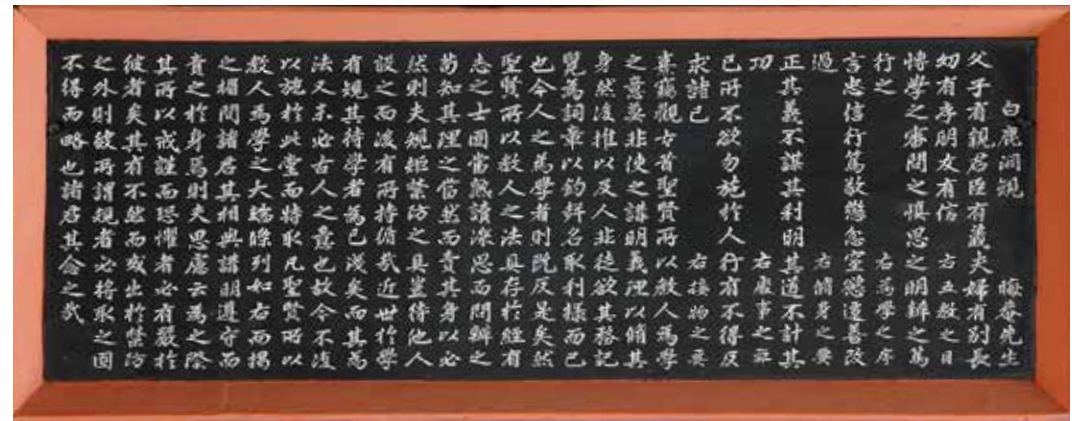 白鹿洞規 晦菴先生
父子有親君臣有義夫婦有別長
幼有序朋友有信 右五教之目
博學之審問之慎思之明辨之篤
行之 右爲學之序
言忠信行篤敬懲忿窒慾遷善改
過 右脩身之要
正其義不謀其利明其道不計其
功 右處事之要
己所不欲勿施於人行有不得反
求諸己 右接物之要
熹竊觀古昔聖賢所以教人爲學
之意莫非使之講明義理以脩其
身然後推以及人非徒欲其務記
覽爲詞章以釣聲名取利祿而已
也今人之爲學者則旣反是矣然
聖賢所以教人之法具存於經有
志之士固當熟讀深思而問辨之
苟知其理之當然而責其身以必
然則夫規矩禁防之具豈待他人
設之而後有所持循哉近世於學
有規其待學者爲已淺矣而其爲
法又未必古人之意也故今不復
以施於此堂而特取凡聖賢所以
教人爲學之大端條列如右而揭
之楣間諸君其相與講明遵守而
責之於身焉則夫思慮云爲之際
其所以戒謹而恐懼者必有嚴於
彼者矣其有不然而或出於禁防
之外則彼所謂規者必將取之固
不得而略也諸君其念之哉